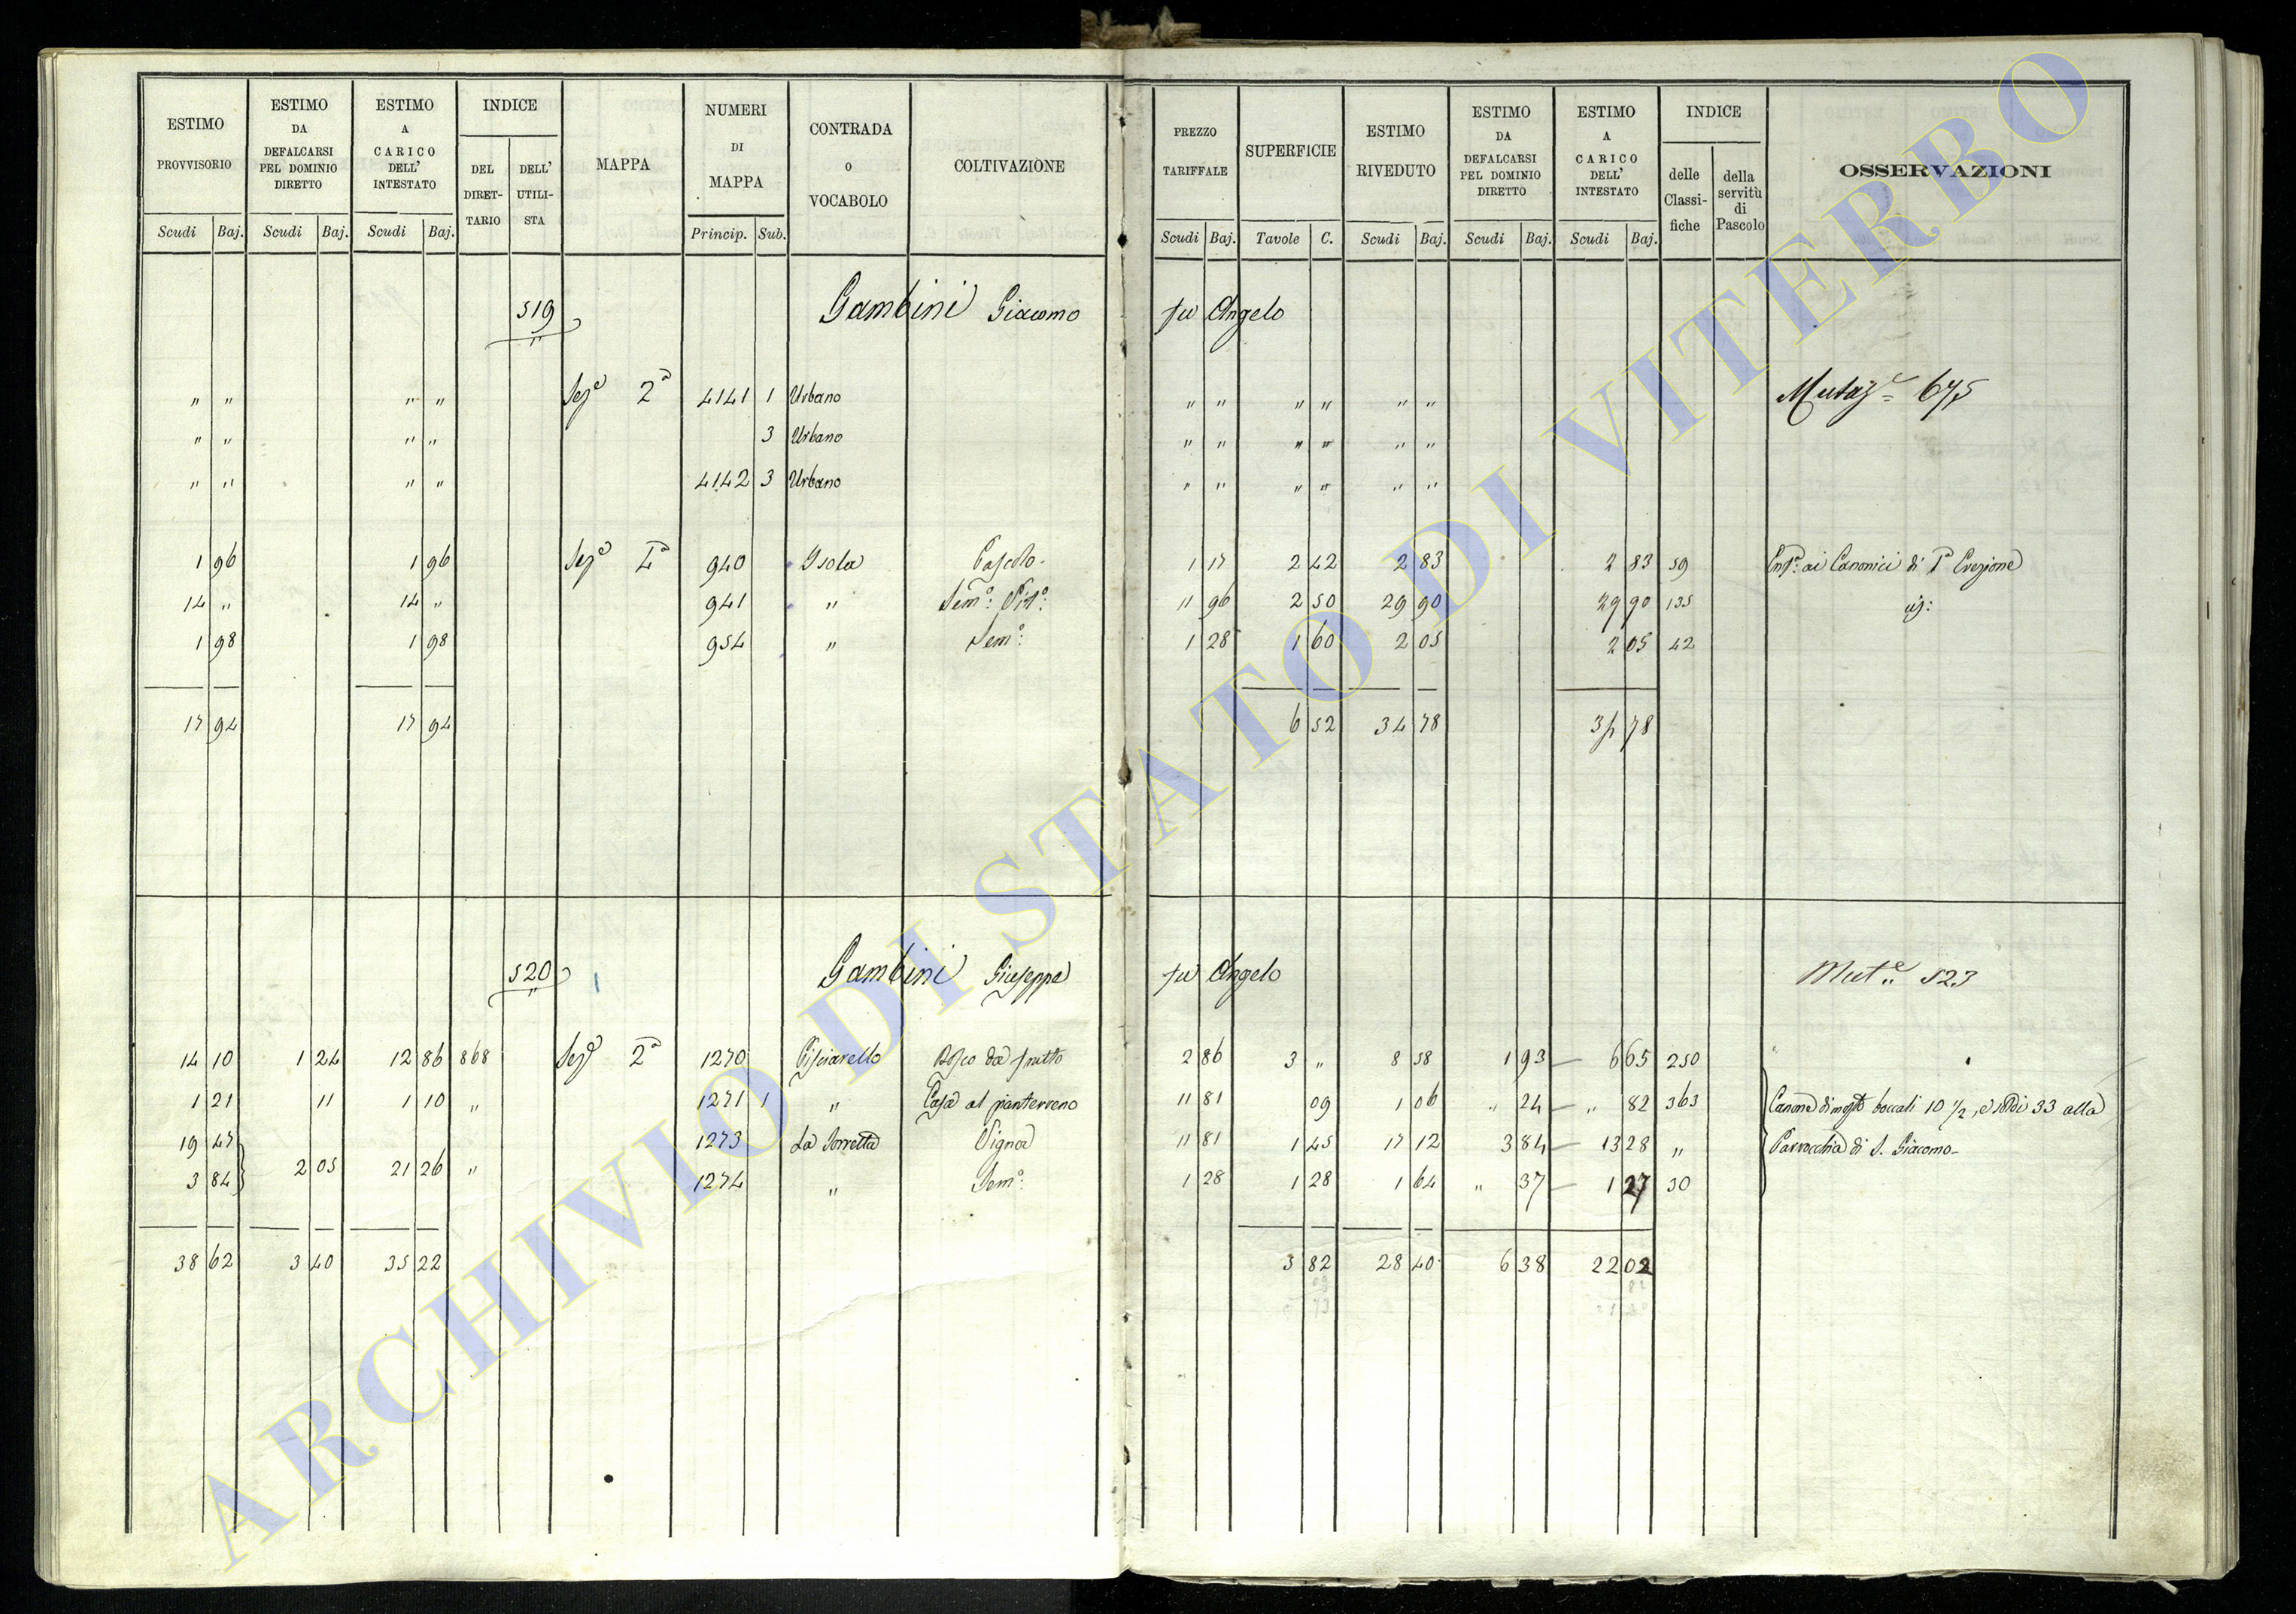 ESTIMO PROVVISORIO Scudi Baj. | ESTIMO DA DEFALCARSI PEL DOMINIO DIRETTO Scudi Baj. | ESTIMO A CARICO DELL' INTESTATO Scudi Baj. | INDICE DEL DIRET-TARIO | DELL' UTILI-STA | MAPPA | NUMERI DI MAPPA Princip. Sub. | CONTRADA o VOCABOLO | COLTIVAZIONE | PREZZO TARIFFALE Scudi Baj. | SUPERFICIE Tavole C. | ESTIMO RIVEDUTO Scudi Baj. | ESTIMO DA DEFALCARSI PEL DOMINIO DIRETTO Scudi Baj. | ESTIMO A CARICO DELL' INTESTATO Scudi Baj. | INDICE delle Classi-fiche | della servitù di Pascolo | OSSERVAZIONI
519 Gambini Giacomo fu Angelo
" " " " Sez^e 2^a 4141 1 Urbano " " " " " " Mutaz^e 675
" " " " 3 Urbano " " " " " "
" " " " 4142 3 Urbano " " " " " "
1 96 1 96 Sez^e I^a 940 Isola Pascolo 1 17 2 42 2 83 2 83 59 Enf^a: ai Canonici di I^a Erezione
14 " 14 " 941 " Sem^o: Vit^o: 11 96 2 50 29 90 29 90 135
1 98 1 98 954 " Sem^o: 1 28 1 60 2 05 2 05 42
17 94 17 94 6 52 34 78 34 78
520 Gambini Giuseppe fu Angelo Mut^e 523
14 10 1 24 12 86 868 Sez^e 2^a 1270 Pisciarello Bosco da frutto 2 86 3 " 8 58 1 93 — 6 65 250
1 21 11 1 10 " 1271 1 " Casa al pianterreno 11 81 09 1 06 " 24 — " 82 363 Canone di mosto boccali 10 1/2, e soldi 33 alla
19 47 1273 La Torretta Vigna 11 81 1 45 17 12 3 84 — 13 28 " Parrocchia di S. Giacomo
3 84 2 05 21 26 " 1274 " Sem^o: 1 28 1 28 1 64 " 37 — 1 27 30
38 62 3 40 35 22 3 82 28 40 6 38 22 02
ARCHIVIO DI STATO DI VITERBO